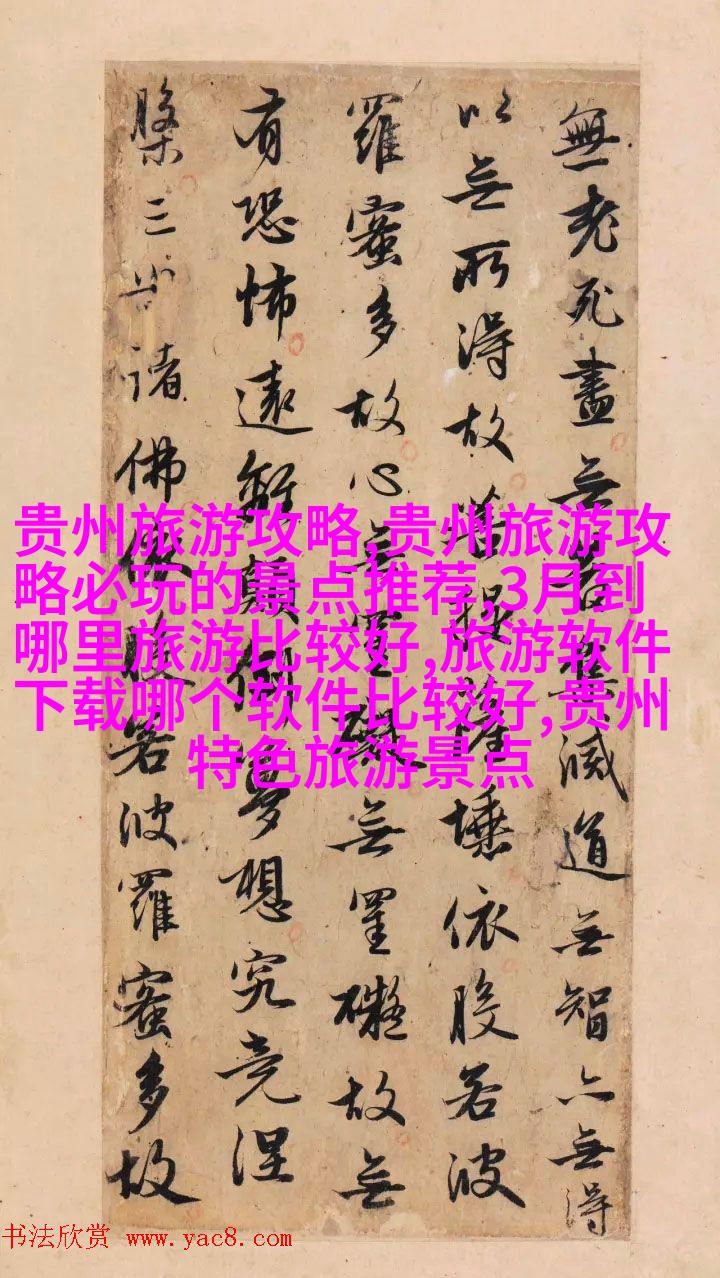 無老死盡无苦集滅道无智亦无得
以无所得故菩提薩埵依般若波
羅蜜多故心无罣礙无罣礙故无
有恐怖遠離顛倒夢想究竟涅
槃三世諸佛依般若波羅蜜多故
贵州旅游攻略,贵州旅游攻
略必玩的景点推荐,3月到
哪里旅游比较好,旅游软件
下载哪个软件比较好,贵州
特色旅游景点
书法欣赏 www.yac8.com